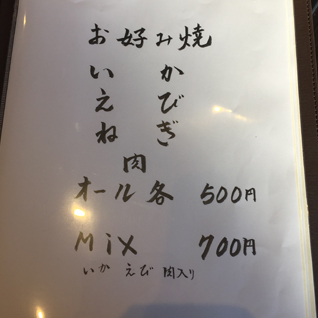 お好み焼
いか
えび
ねぎ
肉
オール各 500円
MiX 700円
いか えび 肉入り